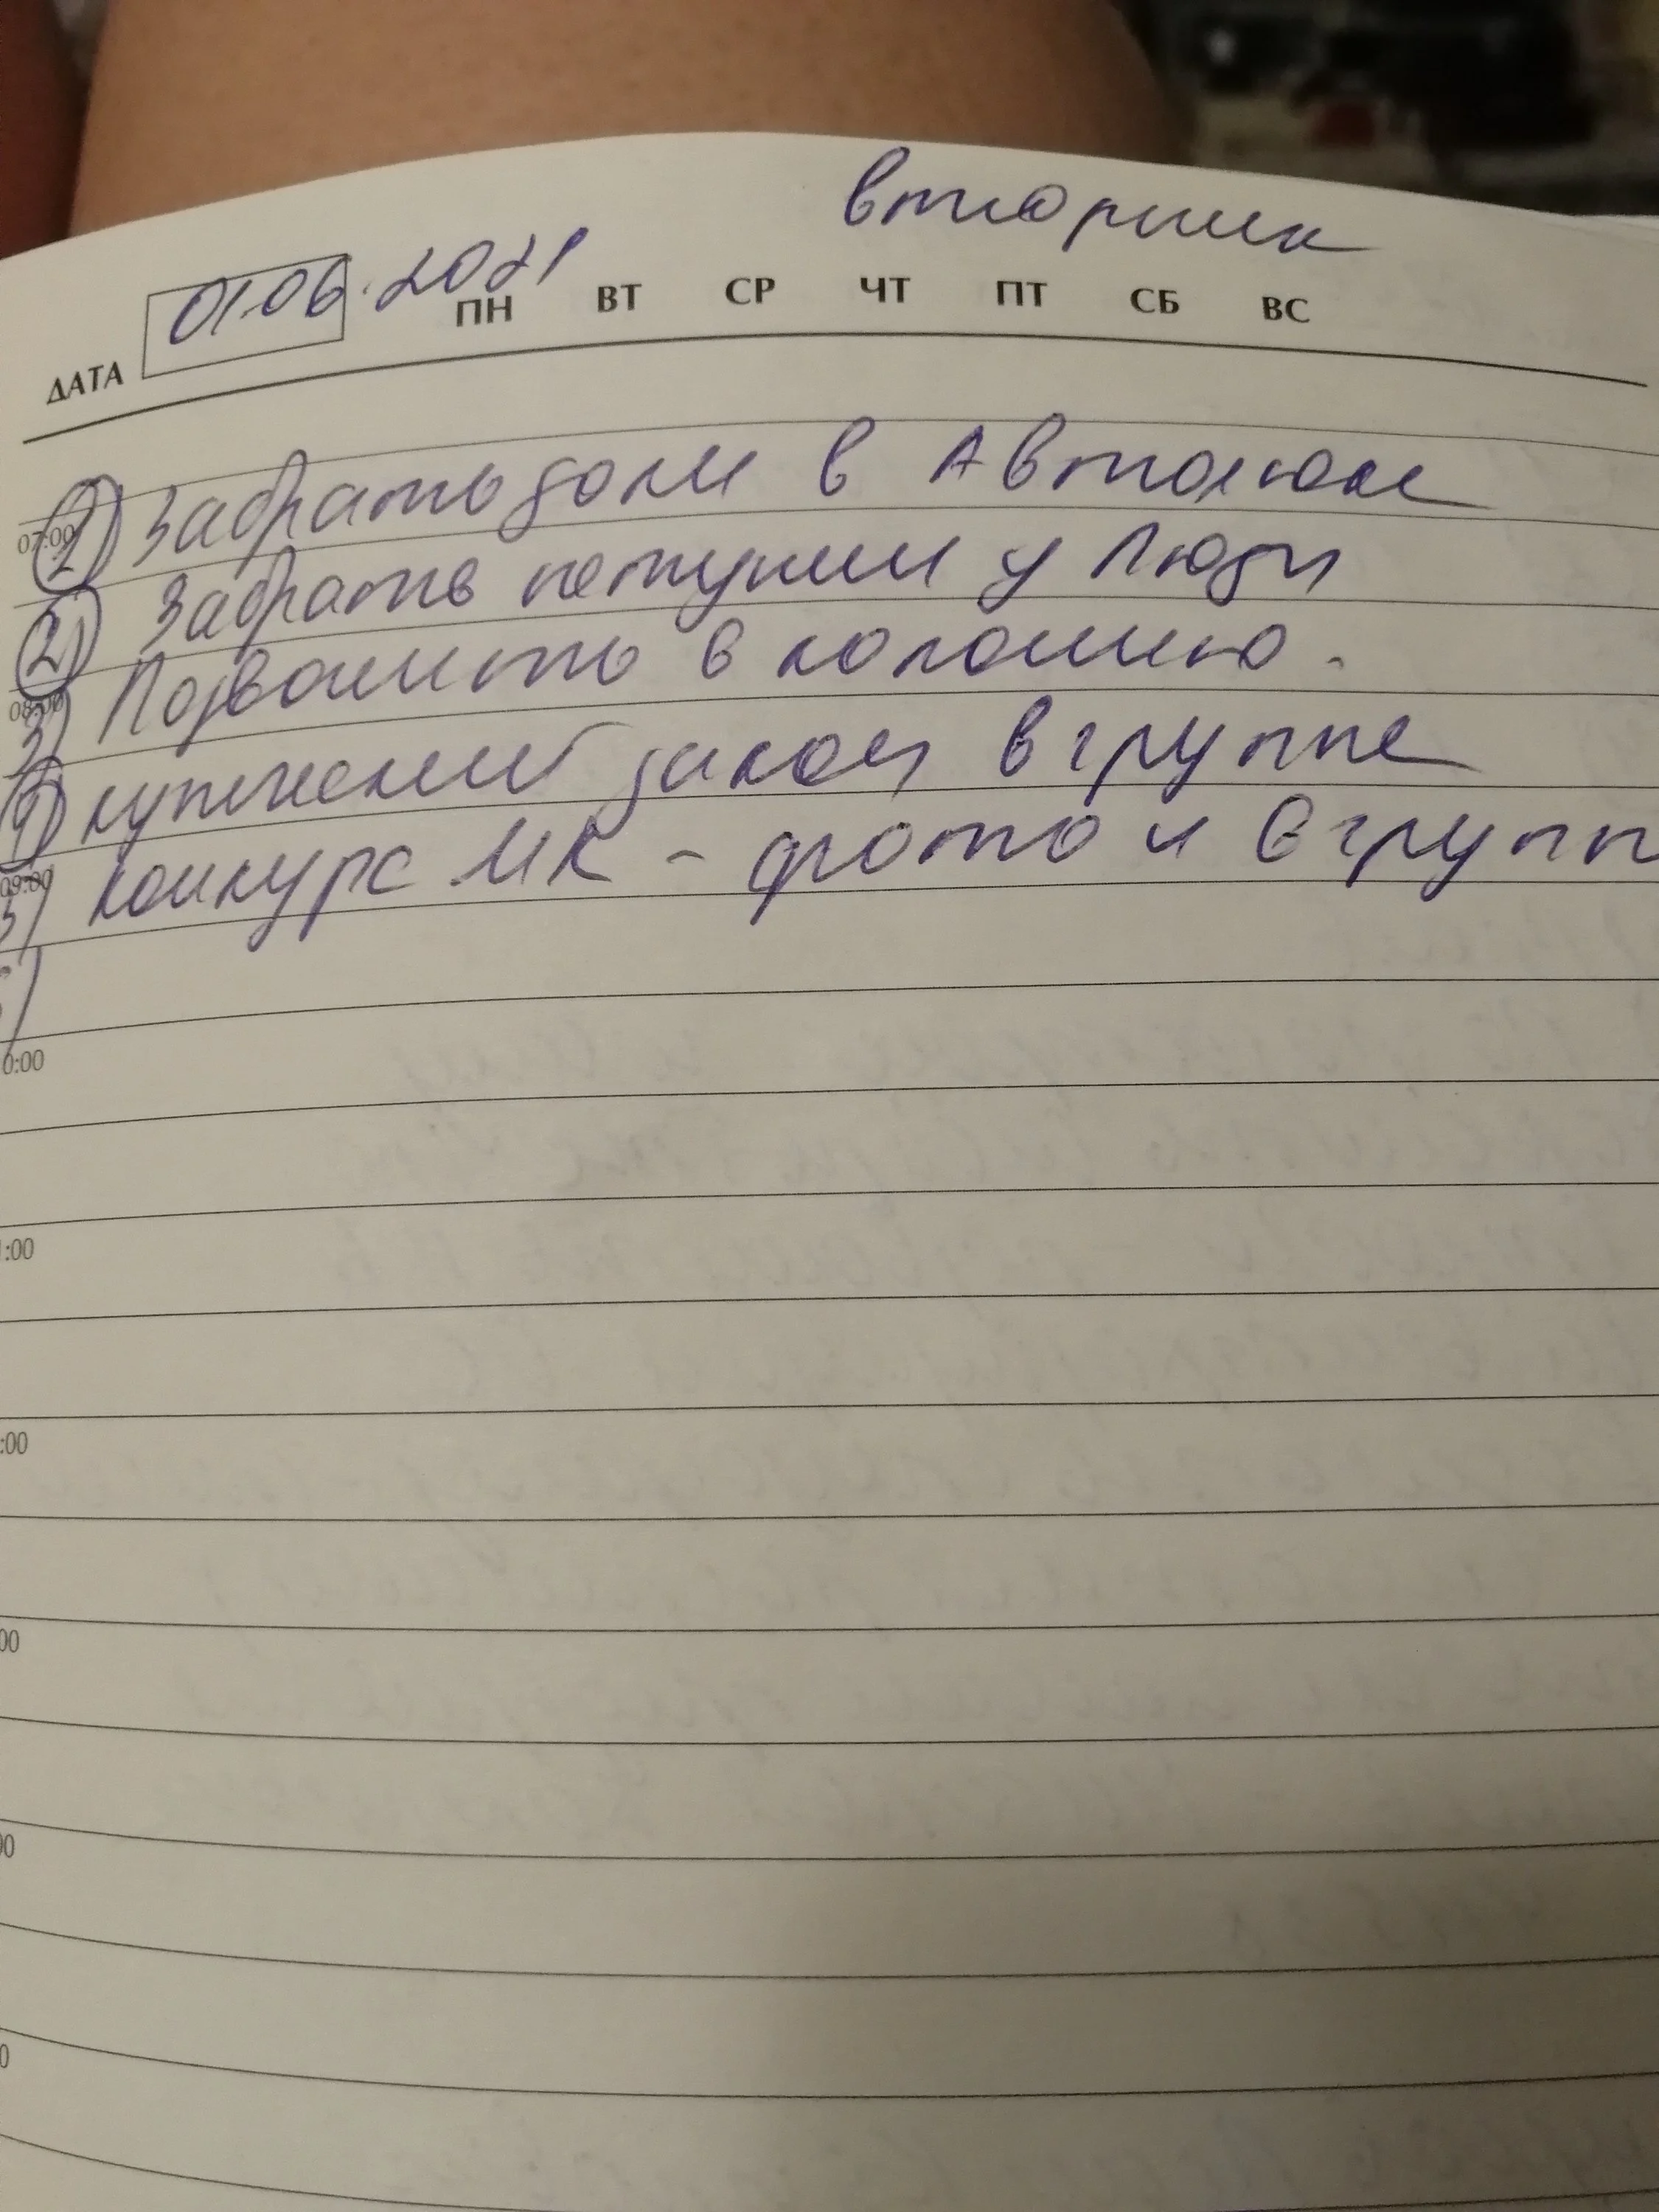 вторник
01.06.2021
ДАТА ПН ВТ СР ЧТ ПТ СБ ВС
07:00
1) Забрать доли в
2) Забрать петунии у Люди
08:00
3) Позвонить в колонию.
4) купеческий закон в группе
09:00
5) конкурс МК - фото и в групп
0:00
:00
:00
00
00
0